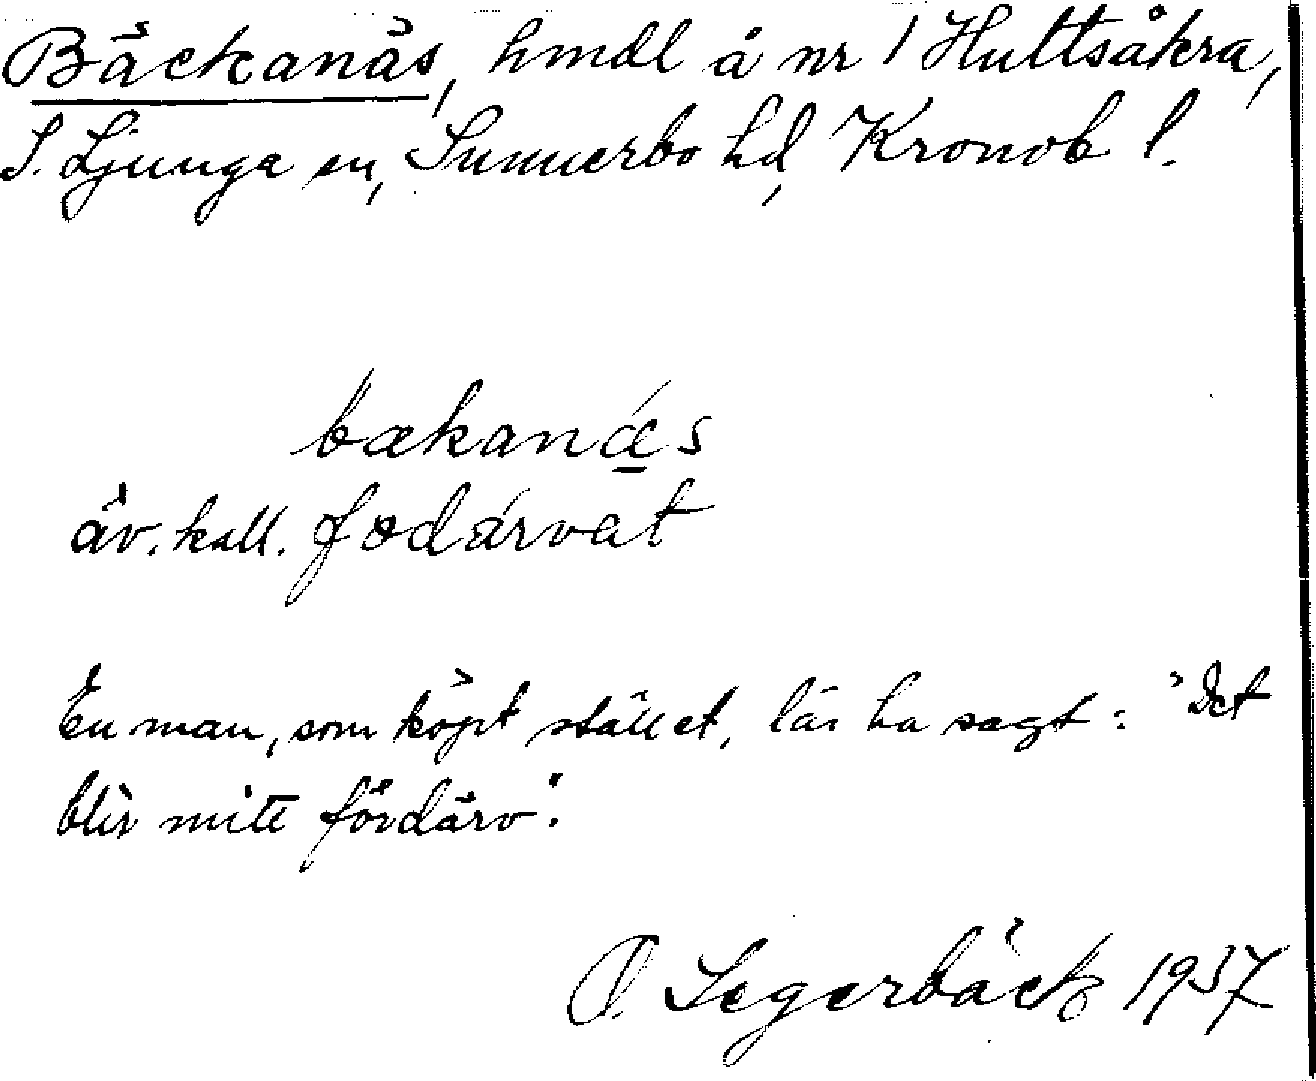 Bäckanäs, hmdl å nr 1 Hultsåkra,
S. Ljunga sn, Sunnerbo hd, Kronob l.
bækanǽs
äv. kall. fodárvat
En man, som köpt stället, lär ha sagt: "Det
blir mitt fördärv".
O. Segerbäck 1937